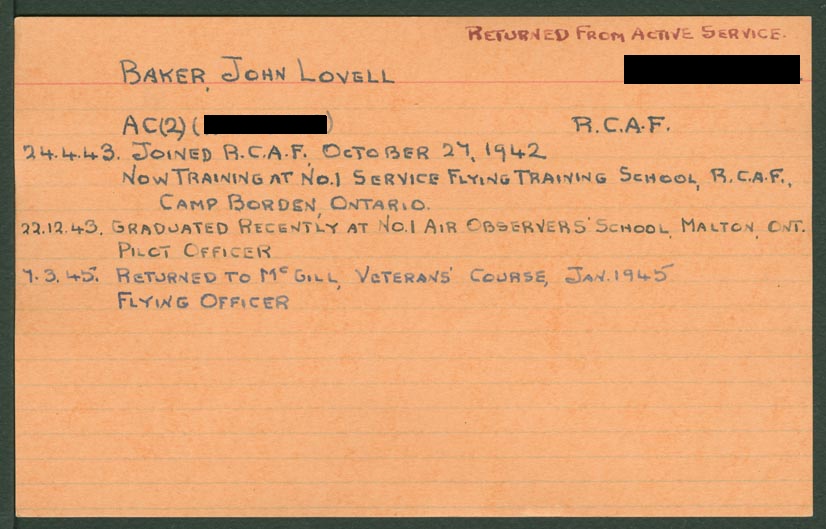 RETURNED FROM ACTIVE SERVICE.
BAKER, JOHN LOVELL
AC(2) ( ) R.C.A.F.
24.4.43. JOINED R.C.A.F. OCTOBER 27, 1942
NOW TRAINING AT NO.1 SERVICE FLYING TRAINING SCHOOL, R.C.A.F.,
CAMP BORDEN, ONTARIO.
22.12.43. GRADUATED RECENTLY AT NO.1 AIR OBSERVERS' SCHOOL, MALTON, ONT.
PILOT OFFICER
7.3.45. RETURNED TO MCGILL, VETERANS' COURSE, JAN. 1945
FLYING OFFICER